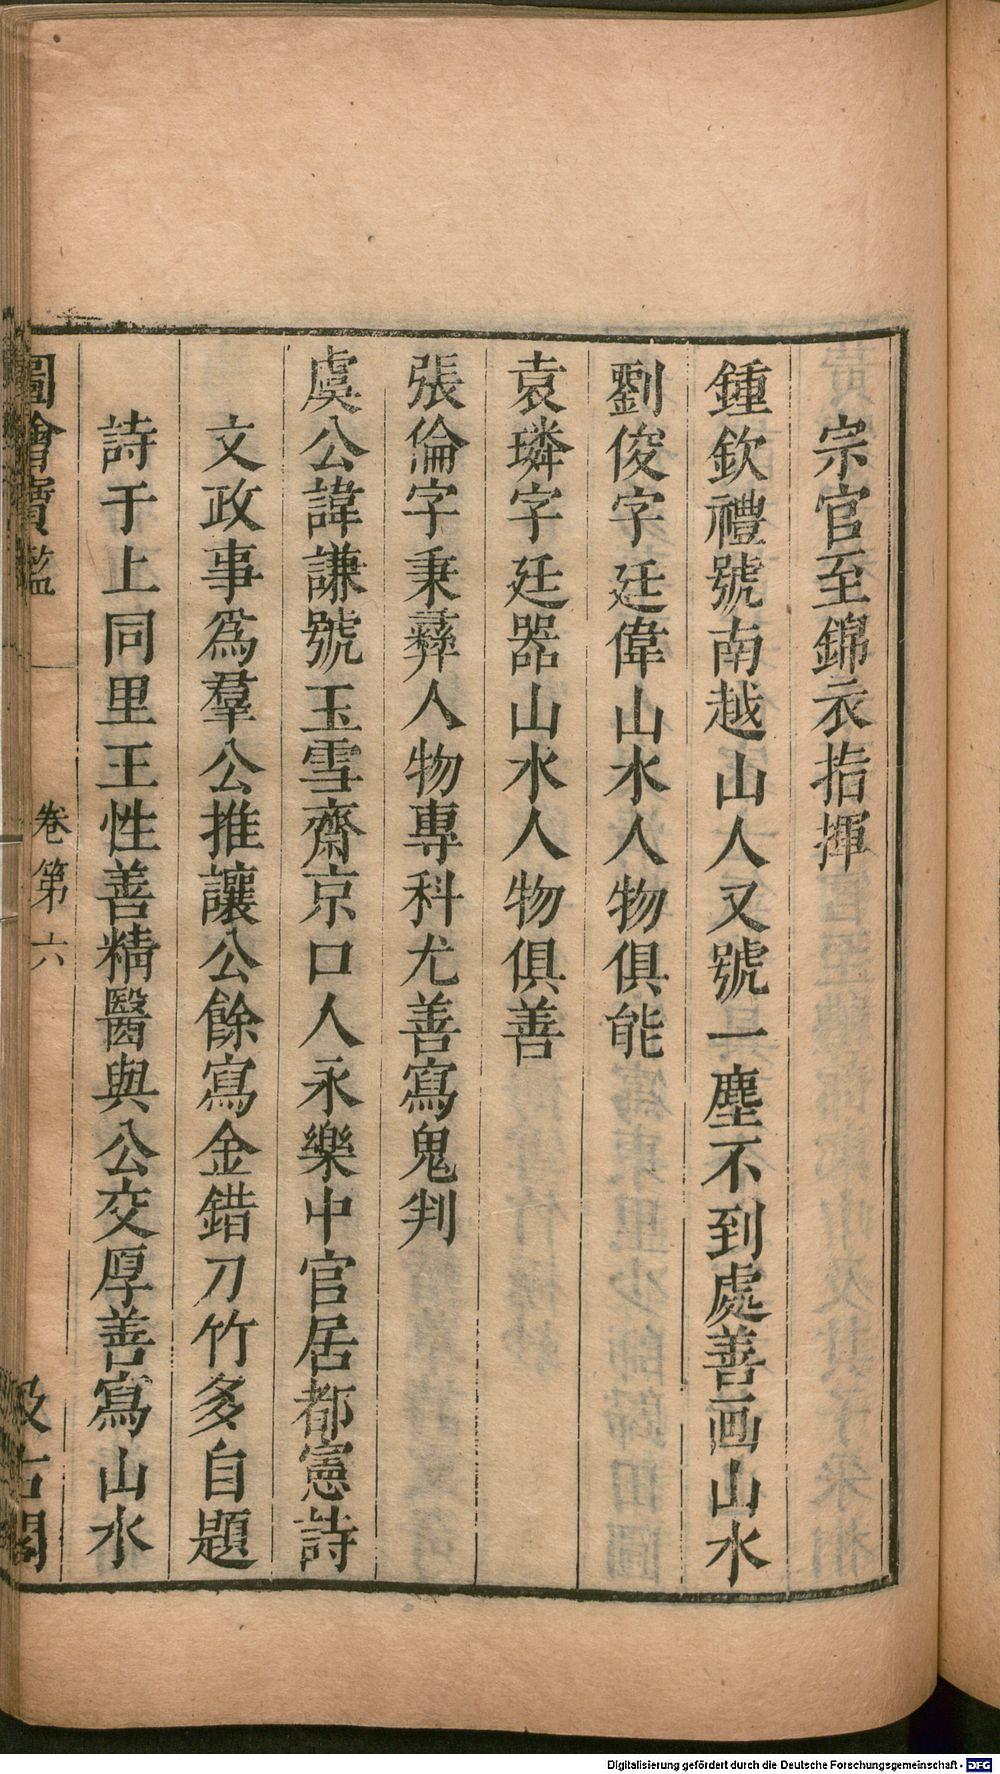 宗官至錦衣指揮
鍾欽禮號南越山人又號一塵不到處善画山水
劉俊字廷偉山水人物俱能
袁璘字廷器山水人物俱善
張倫字秉彞人物專科尤善寫鬼判
虞公諱謙號玉雪齋京口人永樂中官居都憲詩
文政事爲羣公推讓公餘寫金錯刀竹多自題
詩于上同里王性善精醫與公交厚善寫山水
圖繪寶鑑 卷第六 汲古閣
Digitalisierung gefördert durch die Deutsche Forschungsgemeinschaft - DFG